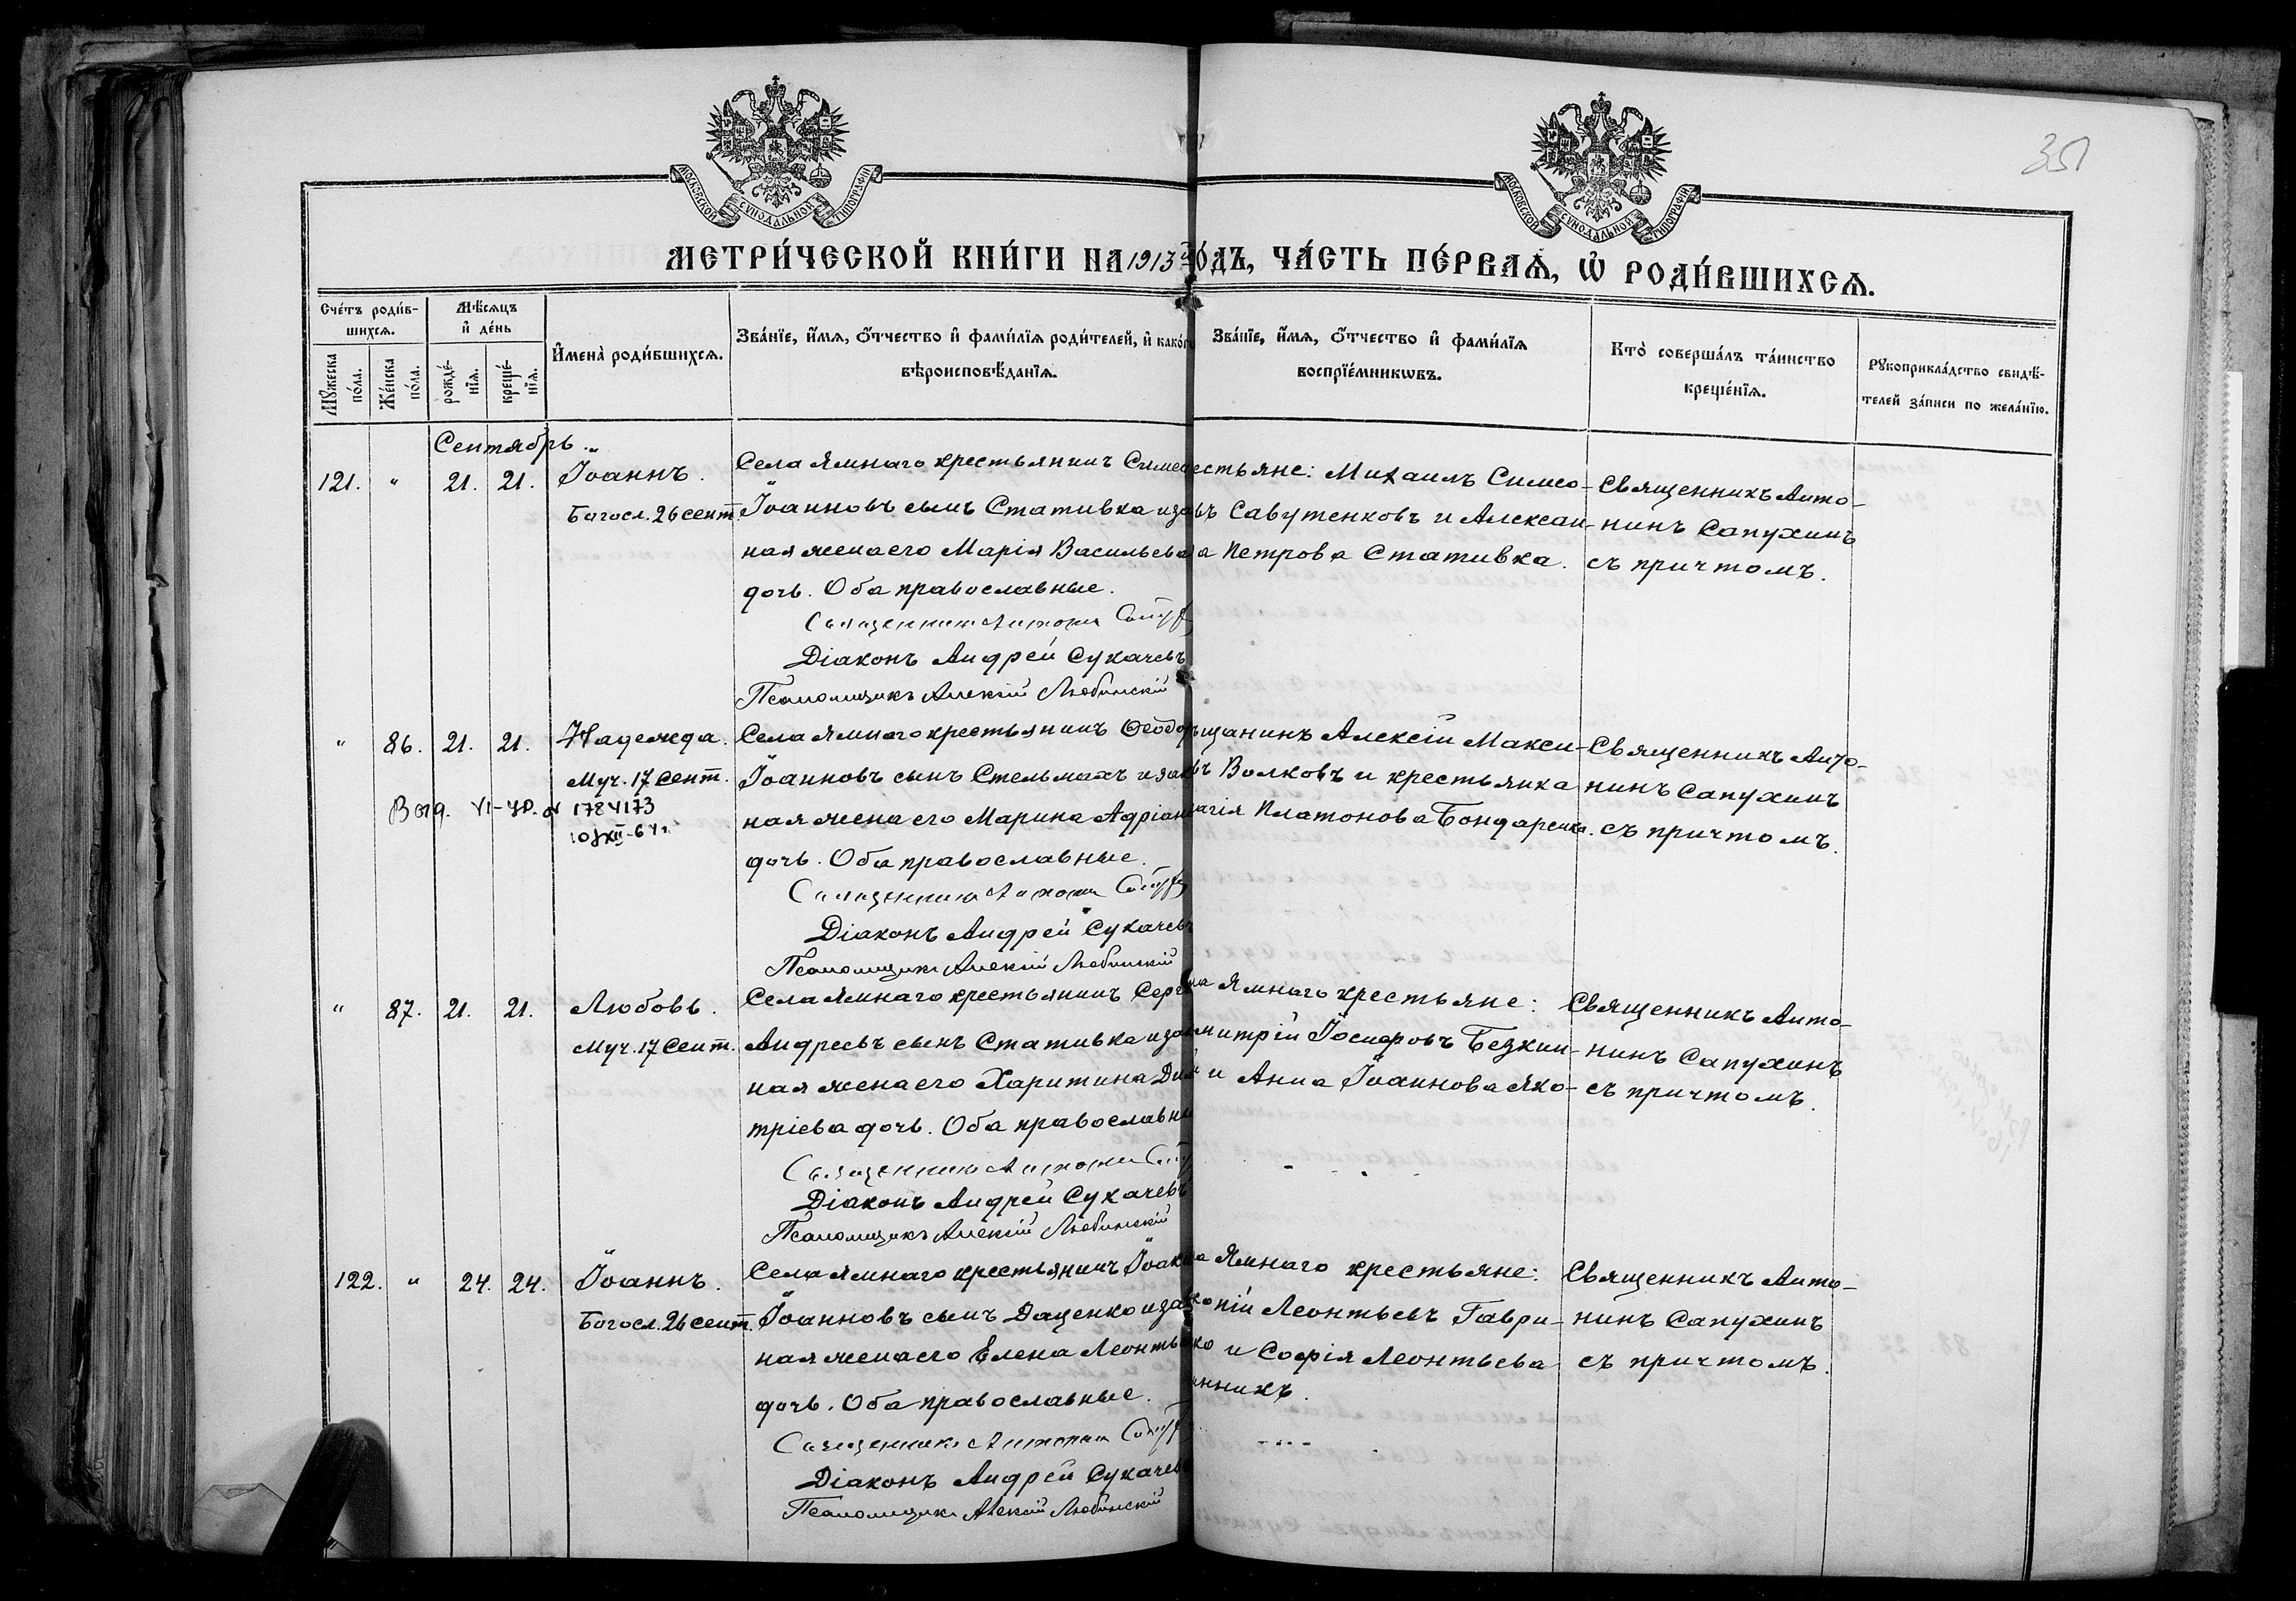 351
МОСКОВСКОЙ СѴНОДАЛЬНОЙ ТИПОГРАФІИ
МОСКОВСКОЙ СѴНОДАЛЬНОЙ ТИПОГРАФІИ
МЕТРИ́ЧЕСКОЙ КНИ́ГИ НА 1913 й ГО́ДЪ, ЧА́СТЬ ПЕ́РВАѦ, Ѡ҆ РОДИ́ВШИХСѦ.
Сче́тъ роди́в-
шихсѧ.
Мꙋжеска по́ла.
Же́нска по́ла.
Мѣ́сѧцъ
и҆ де́нь
рожде́-
нїѧ.
креще́-
нїѧ.
И҆мена̀ роди́вшихсѧ.
Зва́нїе, и҆́мѧ, ѻ҆́тчество и҆ фами́лїѧ роди́телей, и҆ како́гѡ
вѣроисповѣ́данїѧ.
Зва́нїе, и҆́мѧ, ѻ҆́тчество и҆ фами́лїѧ
воспрїе́мникѡвъ.
Кто̀ соверша́лъ та́инство
креще́нїѧ.
Рꙋкоприкла́дство свидѣ́-
телей за́писи по жела́нїю.
Сентябрь.
121. " 21. 21. Іоаннъ.
Богосл. 26 сент.
Села Ямнаго крестьянинъ Симео
Іоанновъ сынъ Стативка и зако
ная жена его Марія Васильева
дочь. Оба православные.
Священникъ Антонин Сапух
Діаконъ Андрей Сукачевъ
Псаломщикъ Алексій Любинскій
естьяне: Михаилъ Симео-
въ Савутенковъ и Алексан-
а Петрова Стативка.
Священникъ Анто-
нинъ Сапухинъ
съ причтомъ.
" 86. 21. 21. Надежда.
Муч. 17 Сент.
Выд. 178
Села Ямнаго крестьянинъ Ѳеодоръ
Іоанновъ сынъ Стельмахъ и зак
ная жена его Марина Адріан
дочь. Оба православные.
Священникъ Антонин Сапух
Діаконъ Андрей Сукачевъ
Псаломщикъ Алексій Любинскій
щанинъ Алексій Макси-
въ Волковъ и крестьянка
агія Платонова Бондаренко.
Священникъ Анто-
нинъ Сапухинъ
съ причтомъ.
" 87. 21. 21. Любовь.
Муч. 17 Сент.
Села Ямнаго крестьянинъ Серг
Андреевъ сынъ Стативка и зак
ная жена его Харитина Дим
тріева дочь. Оба православны
Священникъ Антонин Сап
Діаконъ Андрей Сукачевъ
Псаломщикъ Алексій Любинскій
а Ямнаго крестьяне:
митрій Іосифовъ Безкин-
и Анна Іоаннова Яко-
Священникъ Анто-
нинъ Сапухинъ
съ причтомъ.
122. " 24. 24. Іоаннъ.
Богосл. 26 сент.
Села Ямнаго крестьянинъ Іоак
Іоанновъ сынъ Даценко и зак
ная жена его Елена Леонть
дочь. Оба православные.
Священникъ Антонин Сапух
Діаконъ Андрей Сукачев
Псаломщикъ Алексій Любинскій
а Ямнаго крестьяне:
копій Леонтьевъ Гаври-
ко и Софія Леонтьева
нникъ.
Священникъ Анто-
нинъ Сапухинъ
съ причтомъ.